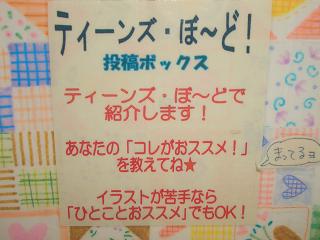 ティーンズ・ぼ～ど！
投稿ボックス
ティーンズ・ぼ～どで
紹介します！
あなたの「コレがおススメ！」
を教えてね★
イラストが苦手なら
「ひとことおススメ」でもOK！
まってるヨ